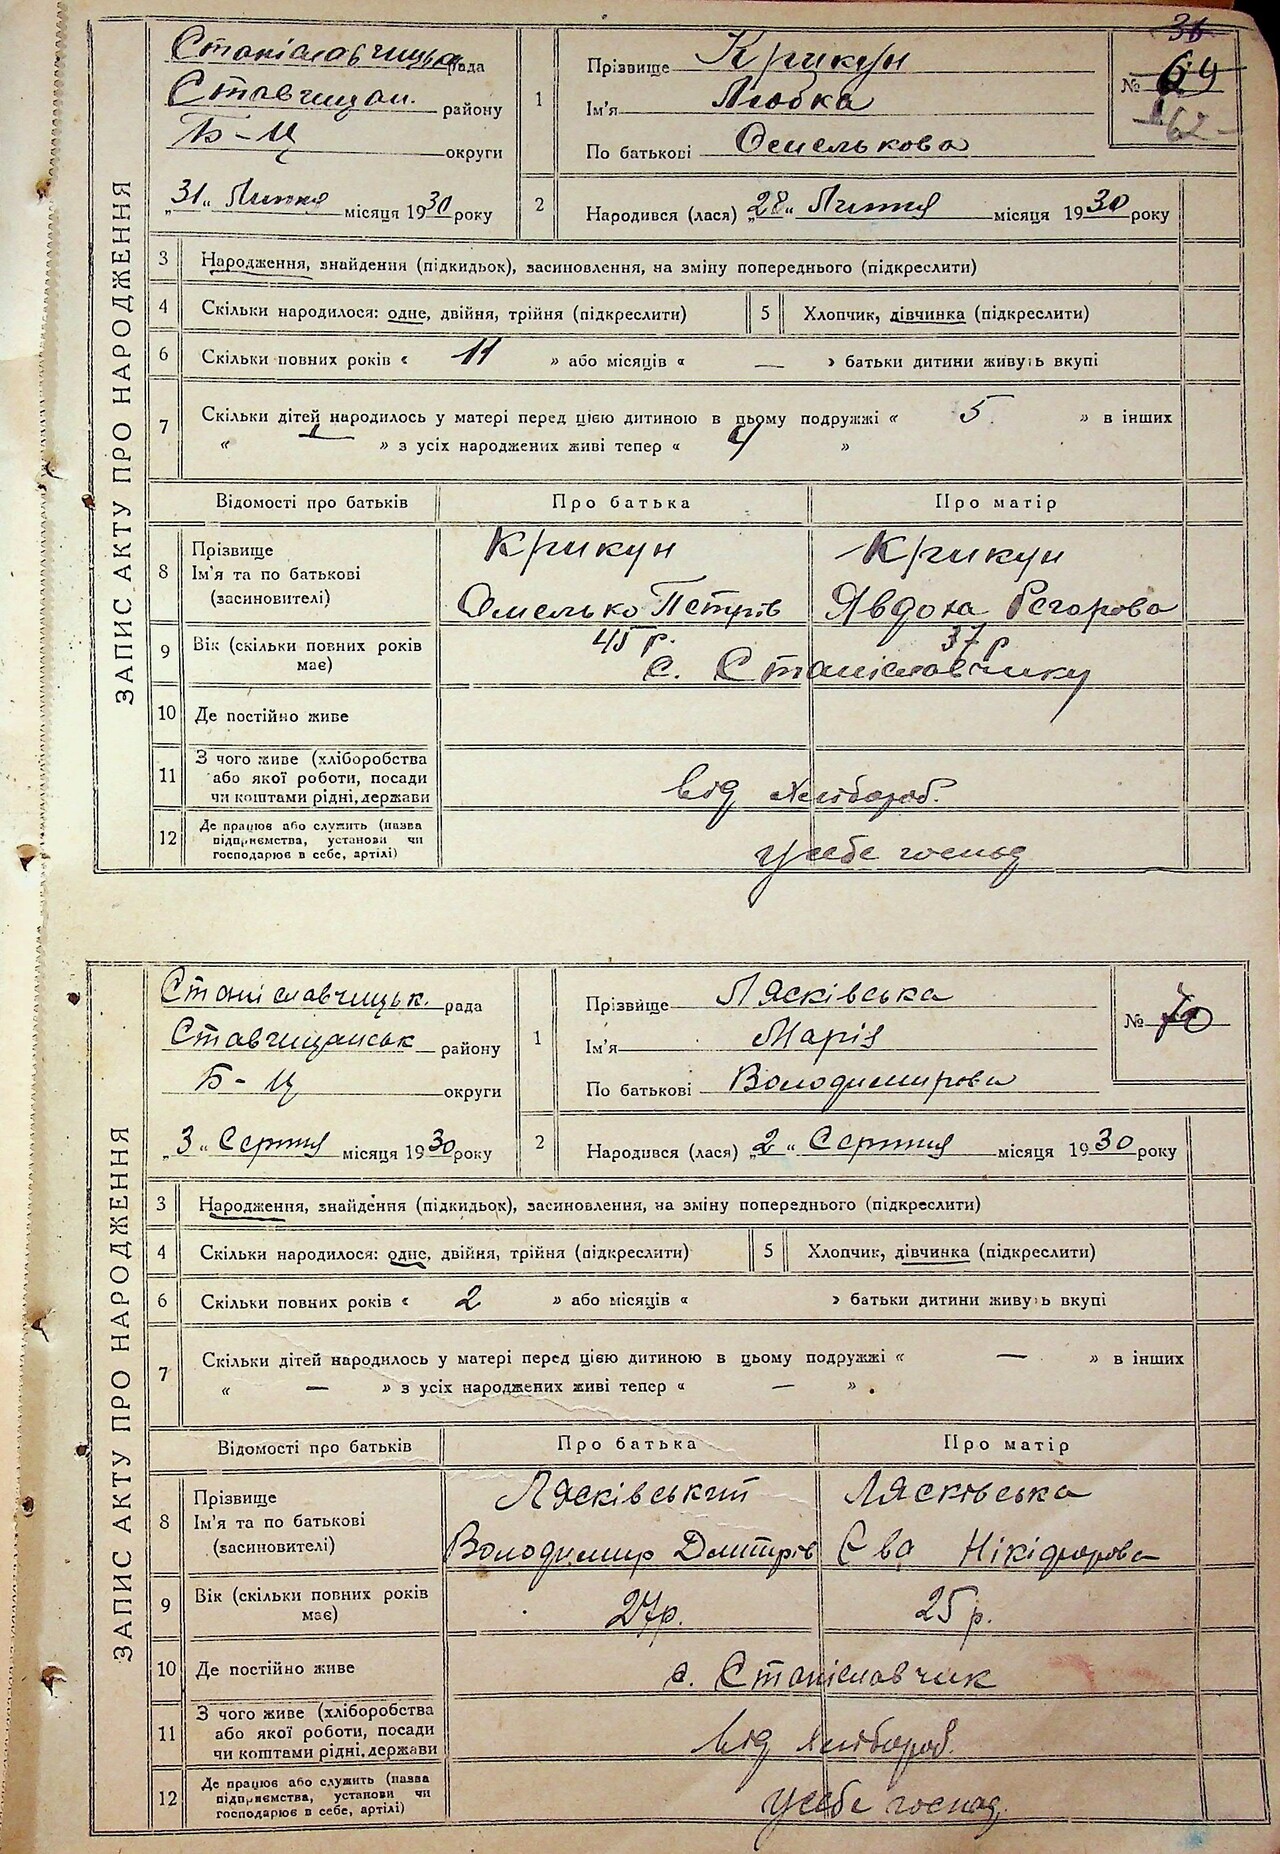 ЗАПИС АКТУ ПРО НАРОДЖЕННЯ
Станіславчицька рада
Ставчищан. району
Б-Ц округи
„31“ Липня місяця 1930 року
1 Прізвище Крикун
Ім'я Любка
По батькові Омелькова
№ 69
62
2 Народився (лася) „28“ Липня місяця 1930 року
3 Народження, знайдення (підкидьок), засиновлення, на зміну попереднього (підкреслити)
4 Скільки народилося: одне, двійня, трійня (підкреслити) 5 Хлопчик, дівчинка (підкреслити)
6 Скільки повних років « 11 » або місяців « — » батьки дитини живуть вкупі
7 Скільки дітей народилось у матері перед цією дитиною в цьому подружжі « 5 » в інших
« — » з усіх народжених живі тепер « 4 »
Відомості про батьків Про батька Про матір
8 Прізвище Ім'я та по батькові (засиновителі)
Крикун Крикун
Омелько Петрів Явдоха Єгорова
9 Вік (скільки повних років має) 45 р. 37 р
с. Станіславчику
10 Де постійно живе
11 З чого живе (хліборобства або якої роботи, посади чи коштами рідні, держави
від хлібороб.
12 Де працює або служить (назва підприємства, установи чи господарює в себе, артілі)
у себе господ
ЗАПИС АКТУ ПРО НАРОДЖЕННЯ
Станіславчицьк. рада
Ставчищанськ району
Б-Ц округи
„3“ Серпня місяця 1930 року
1 Прізвище Лясківська
Ім'я Марія
По батькові Володимирова
№ 70
2 Народився (лася) „2“ Серпня місяця 1930 року
3 Народження, знайдення (підкидьок), засиновлення, на зміну попереднього (підкреслити)
4 Скільки народилося: одне, двійня, трійня (підкреслити) 5 Хлопчик, дівчинка (підкреслити)
6 Скільки повних років « 2 » або місяців « » батьки дитини живуть вкупі
7 Скільки дітей народилось у матері перед цією дитиною в цьому подружжі « — » в інших
« — » з усіх народжених живі тепер « — » .
Відомості про батьків Про батька Про матір
8 Прізвище Ім'я та по батькові (засиновителі)
Лясківський Лясківська
Володимир Дмитрів Єва Нікіфорова
9 Вік (скільки повних років має) 27р. 25 р.
10 Де постійно живе с. Станіславчик
11 З чого живе (хліборобства або якої роботи, посади чи коштами рідні, держави
від хлібороб.
12 Де працює або служить (назва підприємства, установи чи господарює в себе, артілі)
у себе господ,